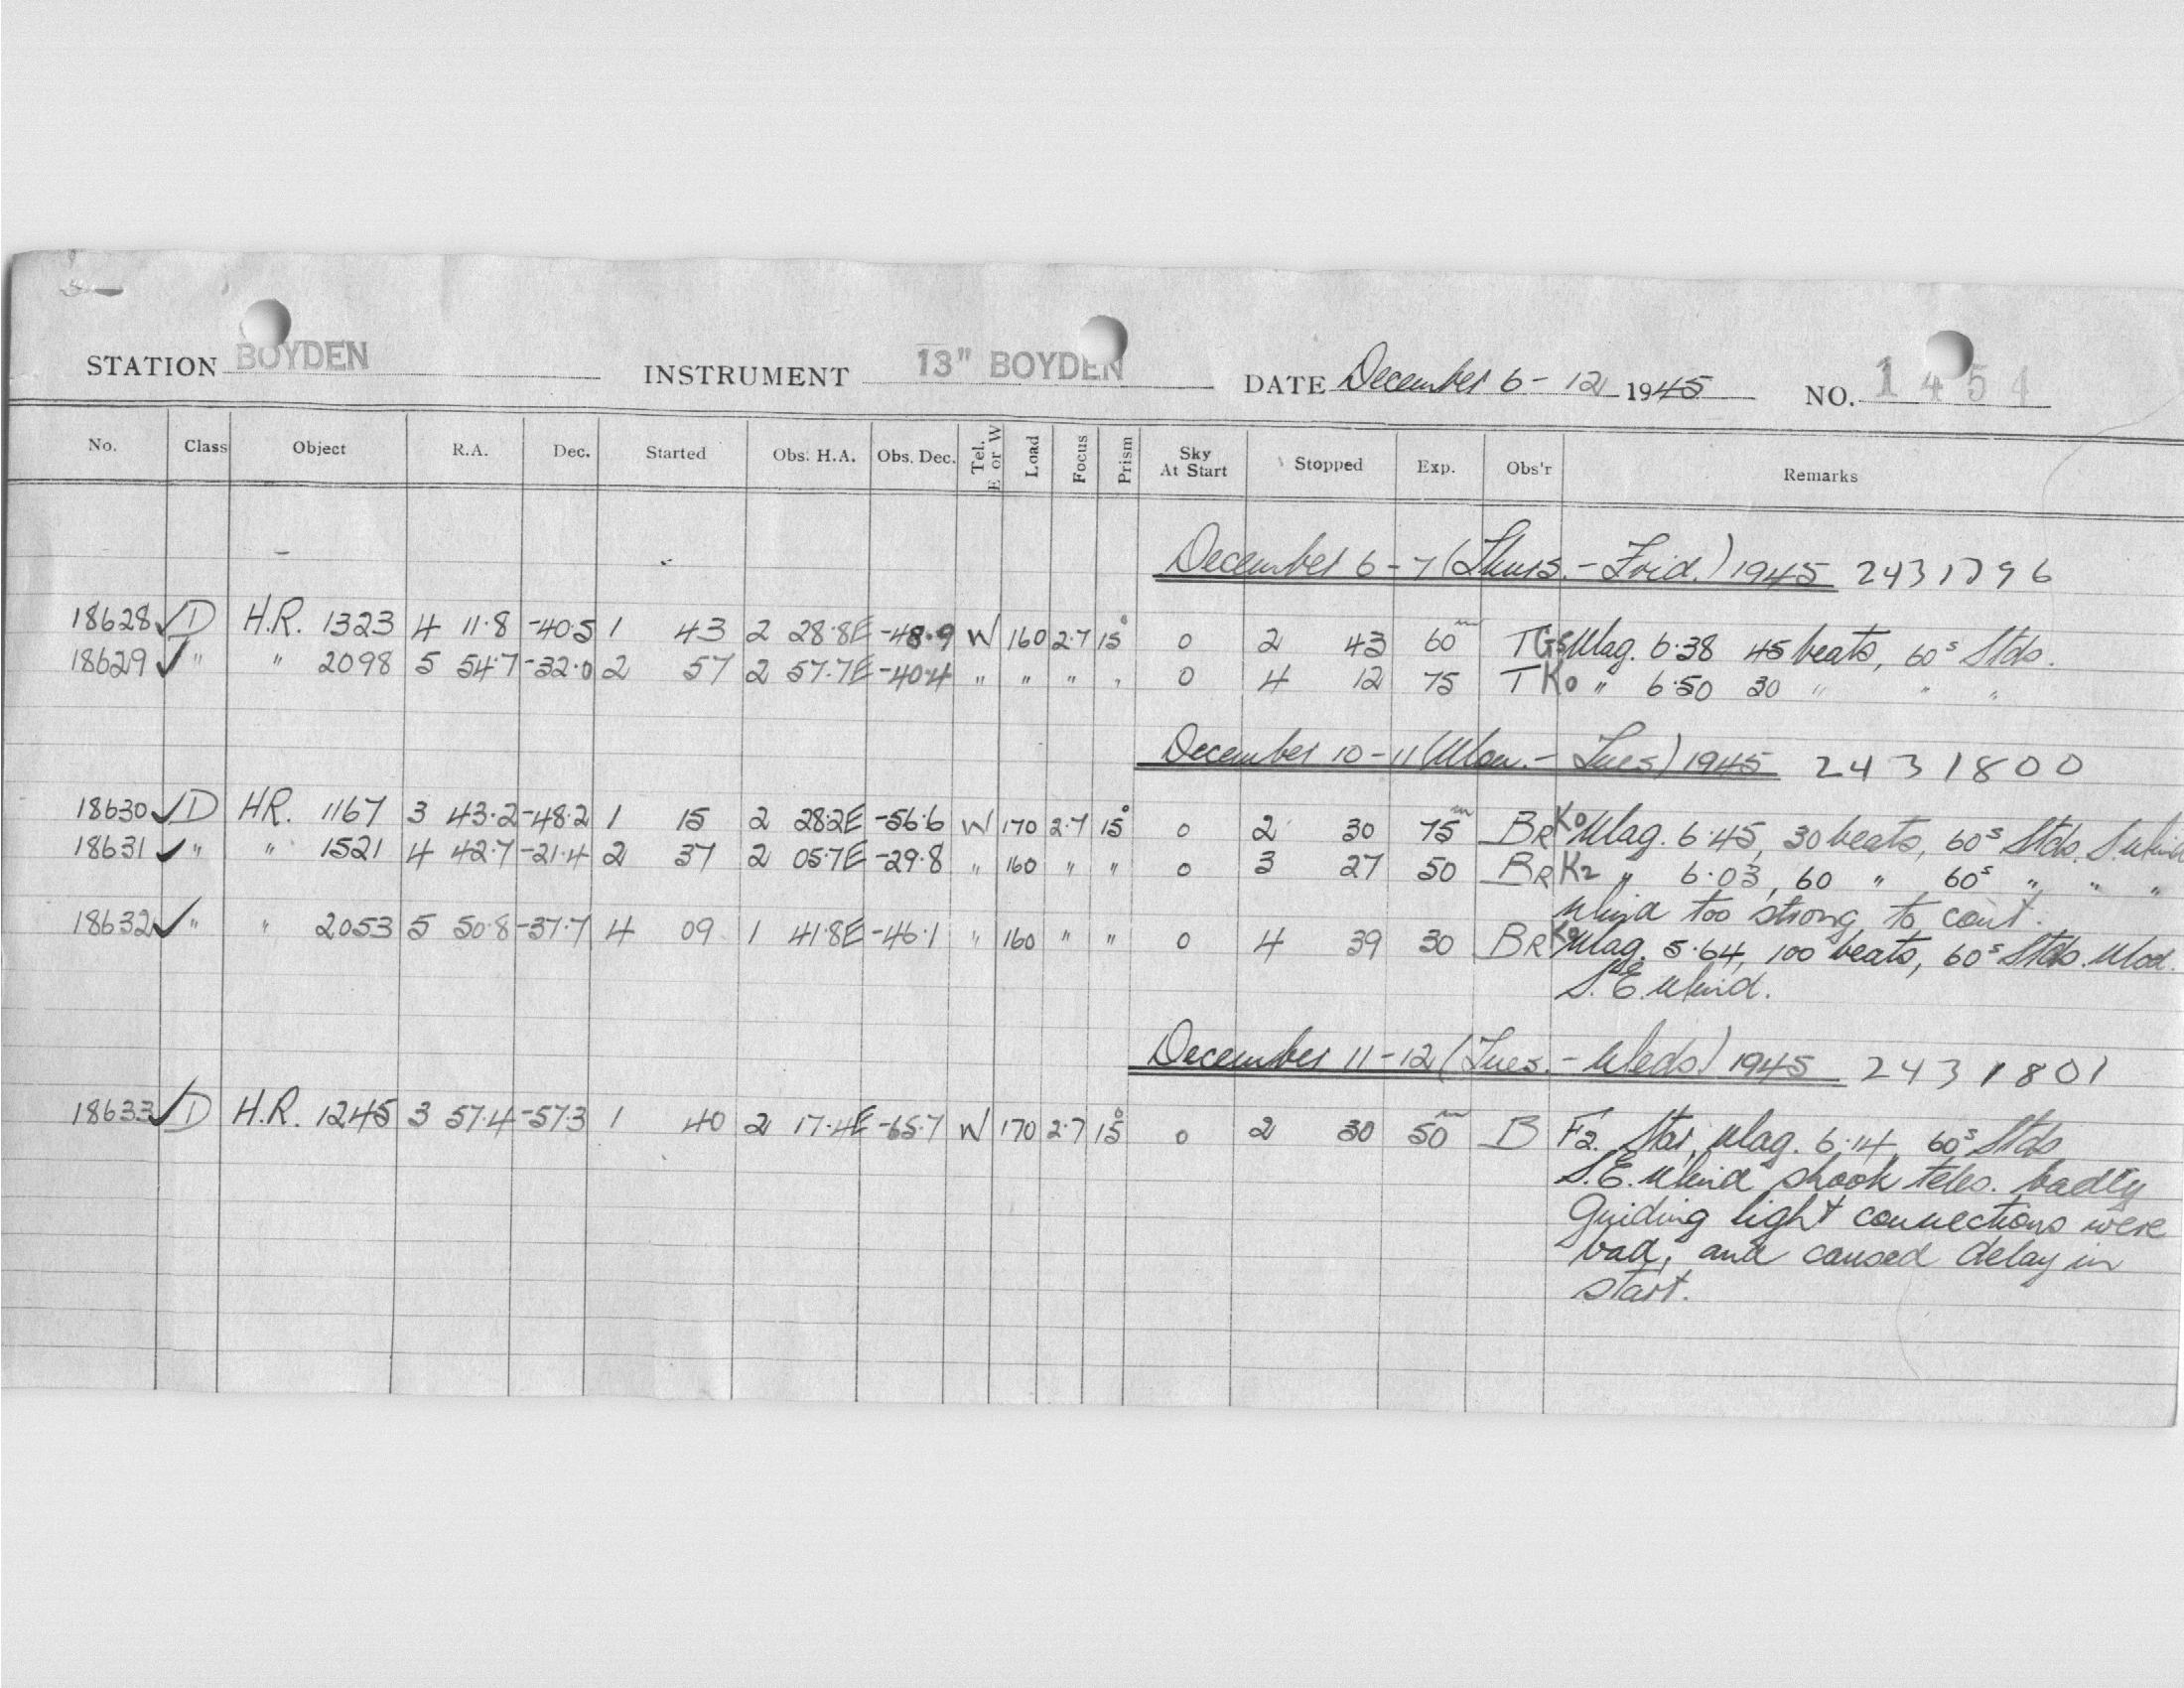 STATION BOYDEN INSTRUMENT 13" BOYDEN DATE December 6 - 12 1945 NO. 1454
No. Class Object R.A. Dec. Started Obs. H.A. Obs. Dec. Tel. E or W Load Focus Prism Sky At Start Stopped Exp. Obs'r Remarks
December 6 - 7 (Thurs. - Frid.) 1945 2431796
18628 ✓ D H.R. 1323 4 11.8 -40.5 1 43 2 28.8E -48.9 W 160 2.7 15° 0 2 43 60m T G5 Mag. 6.38 45 beats, 60s Stds.
18629 ✓ " " 2098 5 54.7 -32.0 2 57 2 57.7E -40.4 " " " " 0 4 12 75 T K0 " 6.50 30 " " "
December 10 - 11 (Mon. - Tues) 1945 2431800
18630 ✓ D HR. 1167 3 43.2 -48.2 1 15 2 28.2E -56.6 W 170 2.7 15° 0 2 30 75m BR K0 Mag. 6.45, 30 beats, 60s Stds. S. Wind
18631 ✓ " " 1521 4 42.7 -21.4 2 37 2 05.7E -29.8 " 160 " " 0 3 27 50 BR K2 " 6.03, 60 " 60s " " "
Wind too strong to con't.
18632 ✓ " " 2053 5 50.8 -37.7 4 09 1 41.8E -46.1 " 160 " " 0 4 39 30 BR Mag. 5.64, 100 beats, 60s Stds. Mod.
S.E. Wind.
December 11 - 12 (Tues. - Weds) 1945 2431801
18633 ✓ D H.R. 1245 3 57.4 -57.3 1 40 2 17.4E -65.7 W 170 2.7 15° 0 2 30 50m B F2. Star, Mag. 6.14, 60s Stds
S.E. Wind shook teles. badly
Guiding light connections were
bad, and caused delay in
start.